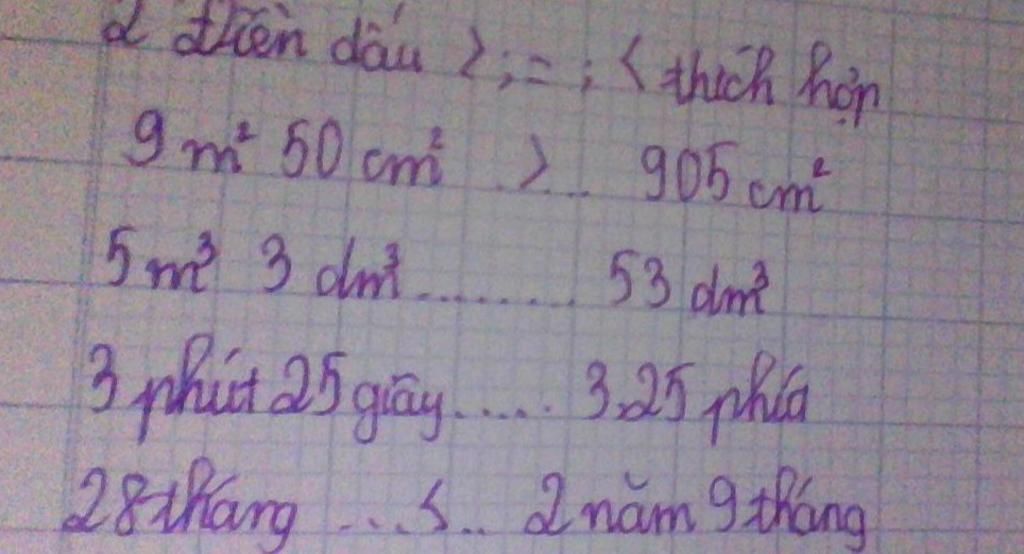 2 điền dấu > ; = ; < thích hợp
9 m² 50 cm² .. > .. 905 cm²
5 m³ 3 dm³ ......... 53 dm³
3 phút 25 giây ..... 3,25 phút
28 tháng ... < .. 2 năm 9 tháng